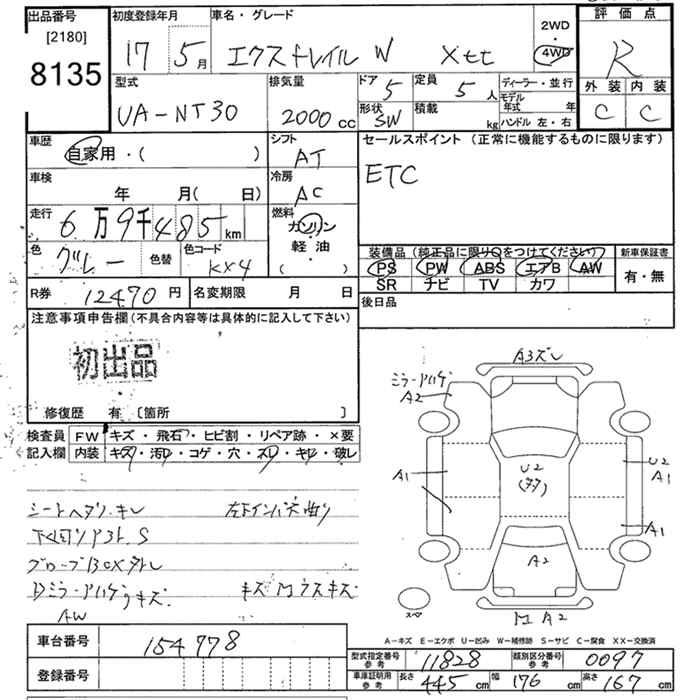 出品番号
[2180]
8135
初度登録年月
17 5月
車名・グレード
エクストレイル W Xtt
2WD
4WD
評価点
R
外装 内装
C C
型式
UA-NT30
排気量
2000 cc
ドア 5
定員 5人
形状 SW
積載 kg
ディーラー・並行
モデル年式 年
ハンドル 左・右
車歴
自家用・( )
車検
年 月( 日)
走行
6万9千485km
色 グレー 色替
色コード KX4
シフト
AT
冷房
AC
燃料
ガソリン
軽油
( )
セールスポイント (正常に機能するものに限ります)
ETC
装備品 (純正品に限り○をつけてください)
PS PW ABS エアB AW
SR ナビ TV カワ
新車保証書
有・無
後日品
R券 12470円
名変期限 月 日
注意事項申告欄(不具合内容等は具体的に記入して下さい)
初出品
修復歴 有 [箇所 ]
検査員記入欄
FW キズ・飛石・ヒビ割・リペア跡・×要
内装 キズ・汚レ・コゲ・穴・スレ・キレ・破レ
シートヘタリ.キレ
下回りサビ S
グローブBOXタレ
Dミラーハゲ,キズ.
AW キズ M ウスキズ
A3ズレ
ミラーハゲ
A2
A1
U2
A1
U2
A1
A2
M A2
スペ
A-キズ E-エクボ U-凹み W-補修跡 S-サビ C-腐食 XX-交換済
車台番号 154778
登録番号
型式指定番号 参考 11828
類別区分番号 参考 0097
車庫証明用 参考 長さ 445cm 幅 176cm 高さ 167cm